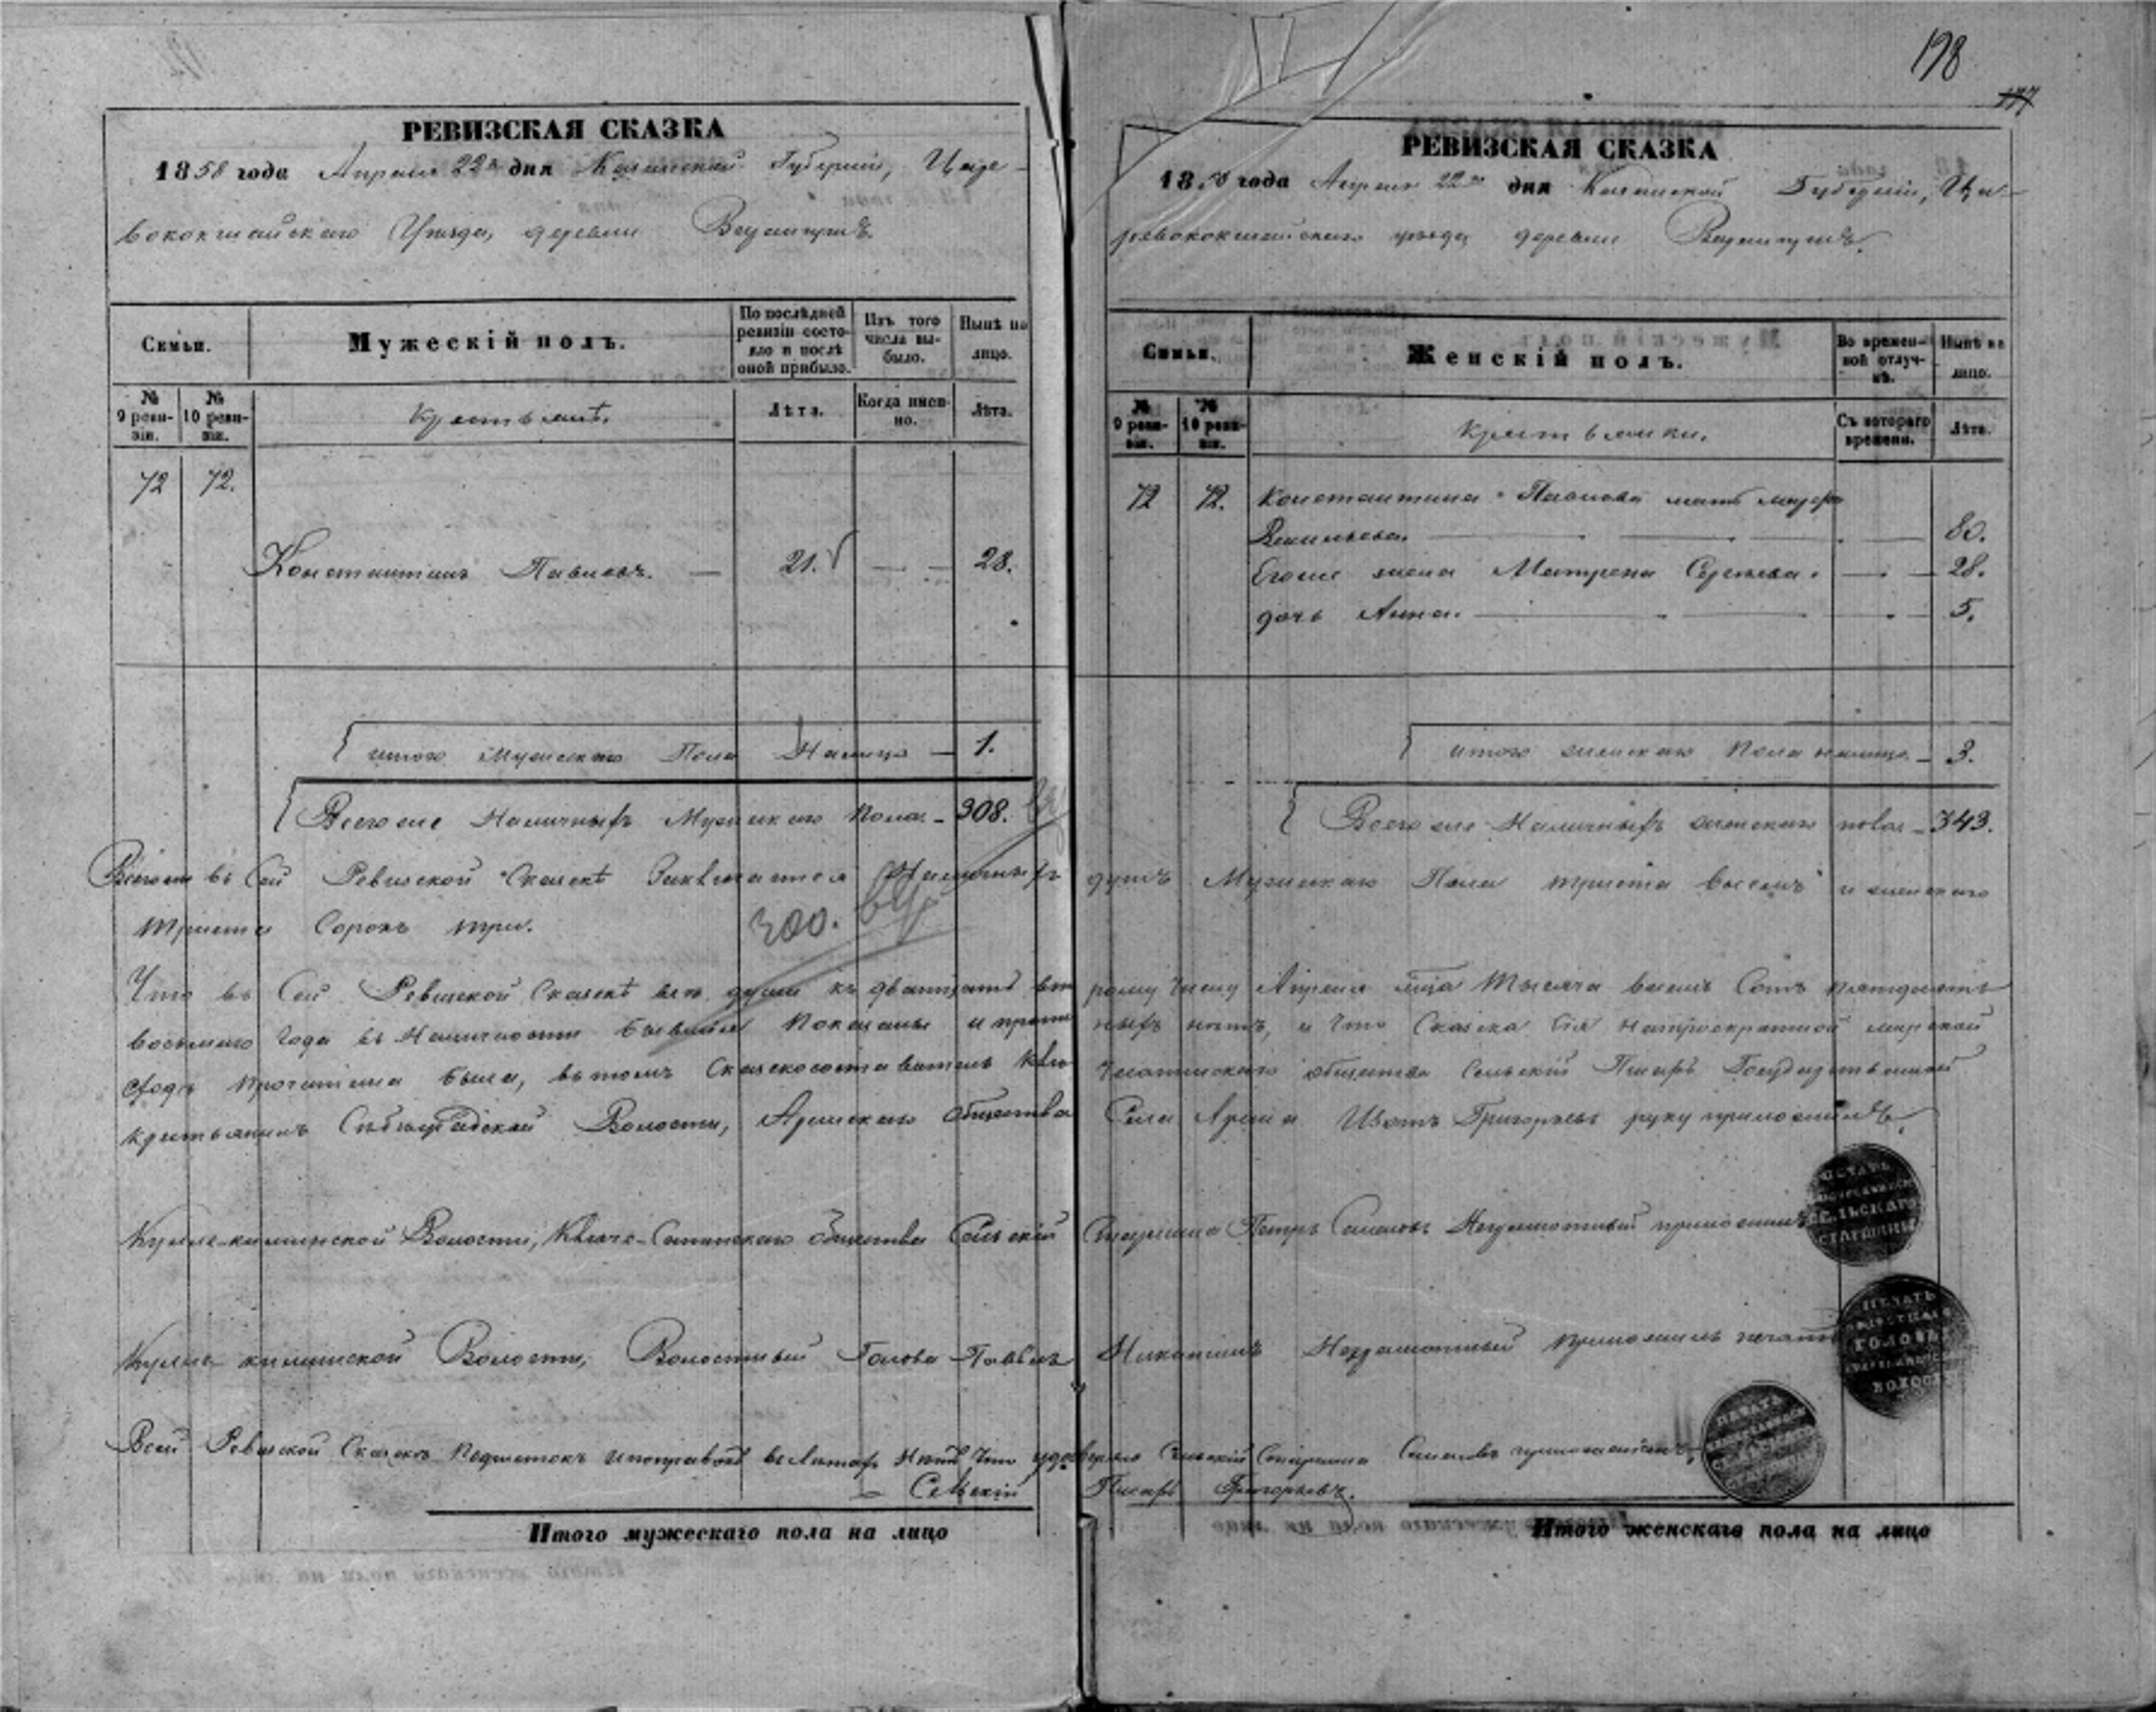 198
177
РЕВИЗСКАЯ СКАЗКА
1858 года Апреля 22го дня Казанской Губернии, Царе-
вококшайскаго Уѣзда, деревни
Семьи.
Мужескій полъ.
По послѣдней ревизіи состояло и послѣ оной прибыло.
Изъ того числа выбыло.
Нынѣ на лицо.
№ 9 реви-зіи.
№ 10 реви-зіи.
Крестьянѣ.
Лѣта.
Когда имен-но.
Лѣта.
72 72.
Константинъ Павловъ. — 21. — — 28.
итого Мужескаго Пола Налицо — 1.
Всего же Наличныхъ Мужескаго пола — 308.
РЕВИЗСКАЯ СКАЗКА
1858 года Апреля 22го дня Казанской Губерніи, Ца-
ревококшайскаго уѣзда деревни
Семьи.
Женскій полъ.
Во времен-ной отлуч-кѣ.
Нынѣ на лицо.
№ 9 реви-зіи.
№ 10 реви-зіи.
Крестьянки.
Съ котораго времени.
Лѣта.
72 72. Константина Павлова мать
Васильева. — 80.
Его же жена Матрена Сергѣева. — 28.
дочь Анна. — 5.
итого женскаго Пола налицо — 3.
Всего же Наличныхъ женскаго пола — 343.
Всего же въ Сей Ревизской Сказкѣ Заключается Наличныхъ душъ Мужескаго Пола триста восемь и женскаго
триста Сорокъ три.
300.
Что въ Сей Ревизской Сказкѣ всѣ души къ двадцать второму числу Апреля мѣсяца Тысяча восемь Сотъ пятьдесятъ
восьмаго года въ Наличности бывшія Показаны и прописныхъ нѣтъ, и что Сказка Сія на троекратной мирской
сходѣ прочитана была, въ томъ Сказкосоставитель общества Сельскій Писарь Государственный
крестьянинъ Волости, Аринскаго Общества Села Арина Изотъ Григорьевъ руку приложилъ.
Кулле-киминской Волости, общества Сельскій Старшина Петръ Семеновъ Неграмотный приложилъ
Кулле-киминской Волости, Волостный Голова Павелъ Никитинъ Неграмотный приложилъ печать
В сей Ревизской Сказкѣ Подчистокъ и поправокъ въ Литахъ Нѣтъ Что удостоверяю Сельскій Старшина Семеновъ
Сельскій Писарь Григорьевъ.
ПЕЧАТЬ СЕЛЬСКАГО СТАРШИНЫ
ПЕЧАТЬ ГОЛОВЫ ВОЛОСТИ
ПЕЧАТЬ
Итого мужескаго пола на лицо
Итого женскаго пола на лицо